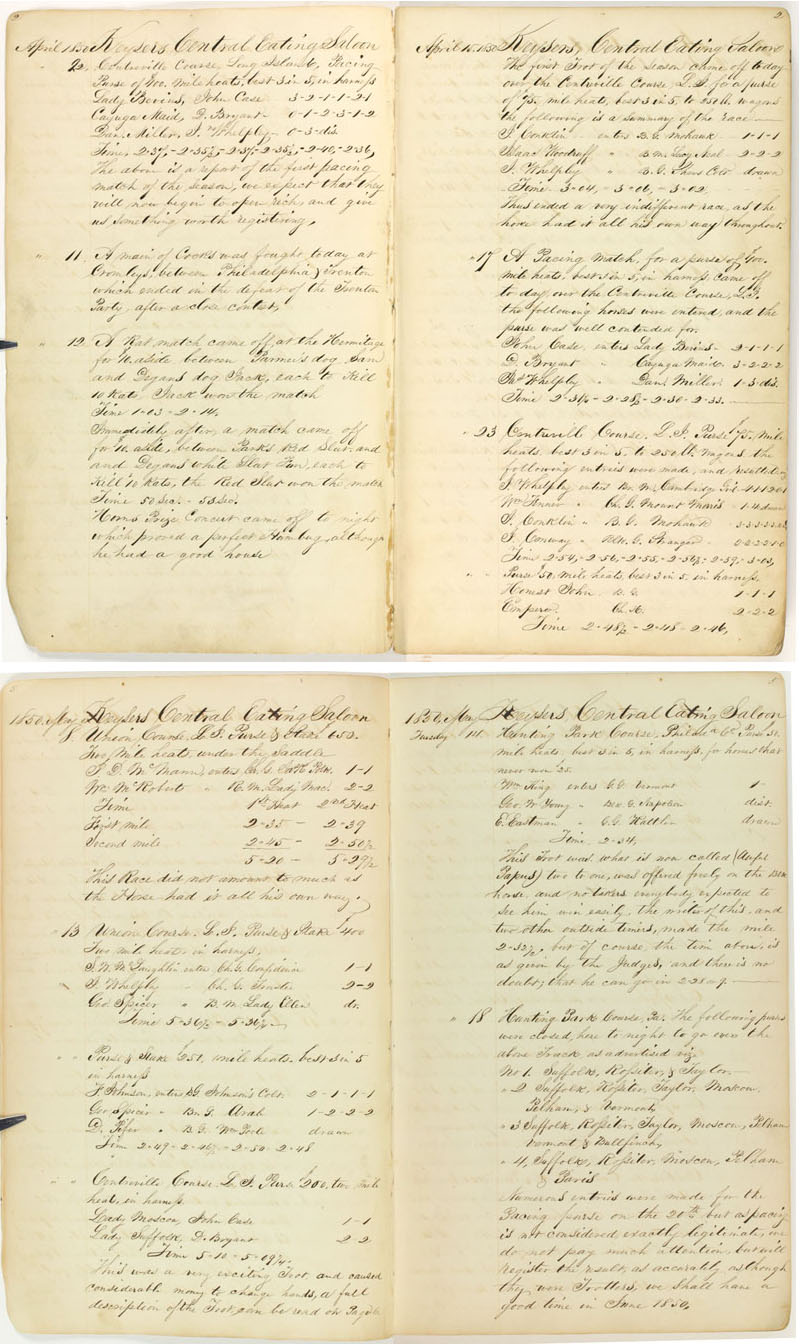 2
April 1850 Keysers Central Eating Saloon
Centreville Course, Long Island, Pacing
Purse of $200. Mile heats, best 3 in 5, in harness
Lady Bevins, John Case 3-2-1-1-2-1
Cayuga Maid, D. Bryant 0-1-2-3-1-2
Dan. Miller, J. Whelpley 0-3-dis.
Time, 2-37½-2-35½-2-37-2-35½-2-40-2-36,
The above is a report of the first pacing
match of the season, we expect that they
will now begin to open rich, and give
us something worth registering,
" 11. A main of Cocks was fought today at
Cromleys, between Philadelphia & Trenton
which ended in the defeat of the Trenton
Party, after a close contest,
" 12. A Rat match came off, at the Hermitage
for aside between Parmer's dog Sam
and Degans dog Jack, each to Kill
10 Rats. Jack won the match
Time 1-03-2-14.
Immediately after, a match came off
for aside, between Parks Red Slut, and
and Degans white Slut Fan, each to
Kill 10 Rats, the Red Slut won the match
Time 50 Sec. - 53 Sec.
Horns Prize Concert came off to night
which proved a perfect Humbug, although
he had a good house
2
April 15. 1850 Keysers, Central Eating Saloon
The first Trot of the Season came off today
over the Centreville Course L.I. for a purse
of $75. mile heats, best 3 in 5, to 250 lb. wagons
the following is a summary of the race
J. Conklin enters B.G. Mohawk 1-1-1
Isaac Woodruff " B.m. Lucy Neal 2-2-2
J. Whelpley " B.G. Colt drawn
Time 3-04, - 3-06, - 3-02
Thus ended a very indifferent race, as the
horse had it all his own way throughout.
" 17 A Pacing match, for a purse of $200.
mile heats, best 3 in 5, in harness, came off
to day, over the Centreville Course, L.I.
the following horses were entered, and the
purse was well contended for.
John Case, enters Lady Bevins - 2-1-1-1
D. Bryant " Cayuga Maid. 3-2-2-2
Jas Whelpley " Dan. Miller. 1-3-dis.
Time 2-31½-2-28½-2-30-2-33.
" 23 Centreville Course, L.I. Purse $75. Mile
heats. best 3 in 5, to 250 lb. Wagons the
following entries were made, and resulted
J. Whelpley enters B.m. Cambridge Girl 4-1-1-2-0-1
Wm Tenner " Ch. G. Mount Morris 1-4-drawn
J. Conklin " B.G. Mohawk 3-3-3-3
J. Conway " G. Stranger 2-2-2-1-0
Time 2-54,-2-56,-2-55,-2-56½-2-59,-3-03,
" " Purse $50, mile heats, best 3 in 5. in harness,
Honest John B.G. 1-1-1
Emperor. Ch. H. 2-2-2
Time 2-48½-2-48-2-46,
5
1850. May Keysers Central Eating Saloon
8 Union Course, L.I. Purse & Stake 650.
Two Mile heats, under the saddle
J. D. McMann, enters G. G. 1-1
Wm. McRoberts " R. M. Lady Mac. 2-2
Time 1st Heat 2nd Heat
First mile 2-35 - 2-39
Second mile 2-45 - 2-50½
5-20 - 5-29½
This Race did not amount to much as
the Horse had it all his own way.
" 13 Union Course. L.I. Purse & Stake $400
Two mile heats, in harness,
J. W. McLaughlin enter Ch. G. Confidence 1-1
J. Whelpley " Ch. G. Trustee 2-2
Geo. Spicer " B. M. Lady Ellen dr.
Time 5-36½-5-36½
" " Purse & Stake $250, mile heats. best 3 in 5
in harness
F. Johnson, enters B.G. Johnson's Colt. 2-1-1-1
Geo Spicer " Bn. G. Arab 1-2-2-2
D. Pifer " B.G. Wm Poole drawn
Time 2-49-2-46½-2-50-2-48
" " Centreville Course. L.I. Purse $200, two mile
heats, in harness.
Lady Moscow, John Case 1-1
Lady Suffolk, D. Bryant 2-2
Time 5-10-5-09½.
This was a very exciting Trot, and caused
considerable money to change hands, a full
description of the Trot can be read on Page
5
1850, May Keysers, Central Eating Saloon
Tuesday Hunting Park Course, Philada Co. Purse
mile heats best 3 in 5, in harness, for horses that
never won 25.
Wm. King enters G.G. Vermont 1-
Geo. W. Young " G. Napoleon dist.
E. Eastman " G.G. Rattler drawn
Time 2-34,
This Trot was what is now called (
) two to one, was offered freely on the
horse and no takers everybody expected to
see him win easily, the writer of this, and
two other outside timers, made the mile
2-32½, but of course the time above, is
as given by the Judges, and there is no
doubt, that he can go in 2-28
" 18 Hunting Park Course, Pa. The following purses
were closed, here to night to go over the
above Track as advertised viz.
No 1. Suffolk, Rossiter, & Taylor.
" 2 Suffolk, Rossiter, Taylor, Moscow,
Pelham, & Vermont,
" 3 Suffolk, Rossiter, Taylor, Moscow, Pelham
Vermont & Bullfinch,
" 4, Suffolk, Rossiter, Moscow, Pelham
& Paris
Numerous entries were made for the
Pacing purse on the 20th but as pacing
is not considered exactly legitimate, we
do not pay much attention, but will
register the result, as accurately as though
they were Trotters, we shall have a
good time in June 1850,